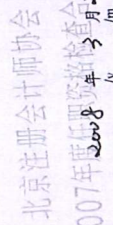 北京注册会计师协会
2007年度任职资格检查合
2008年3月